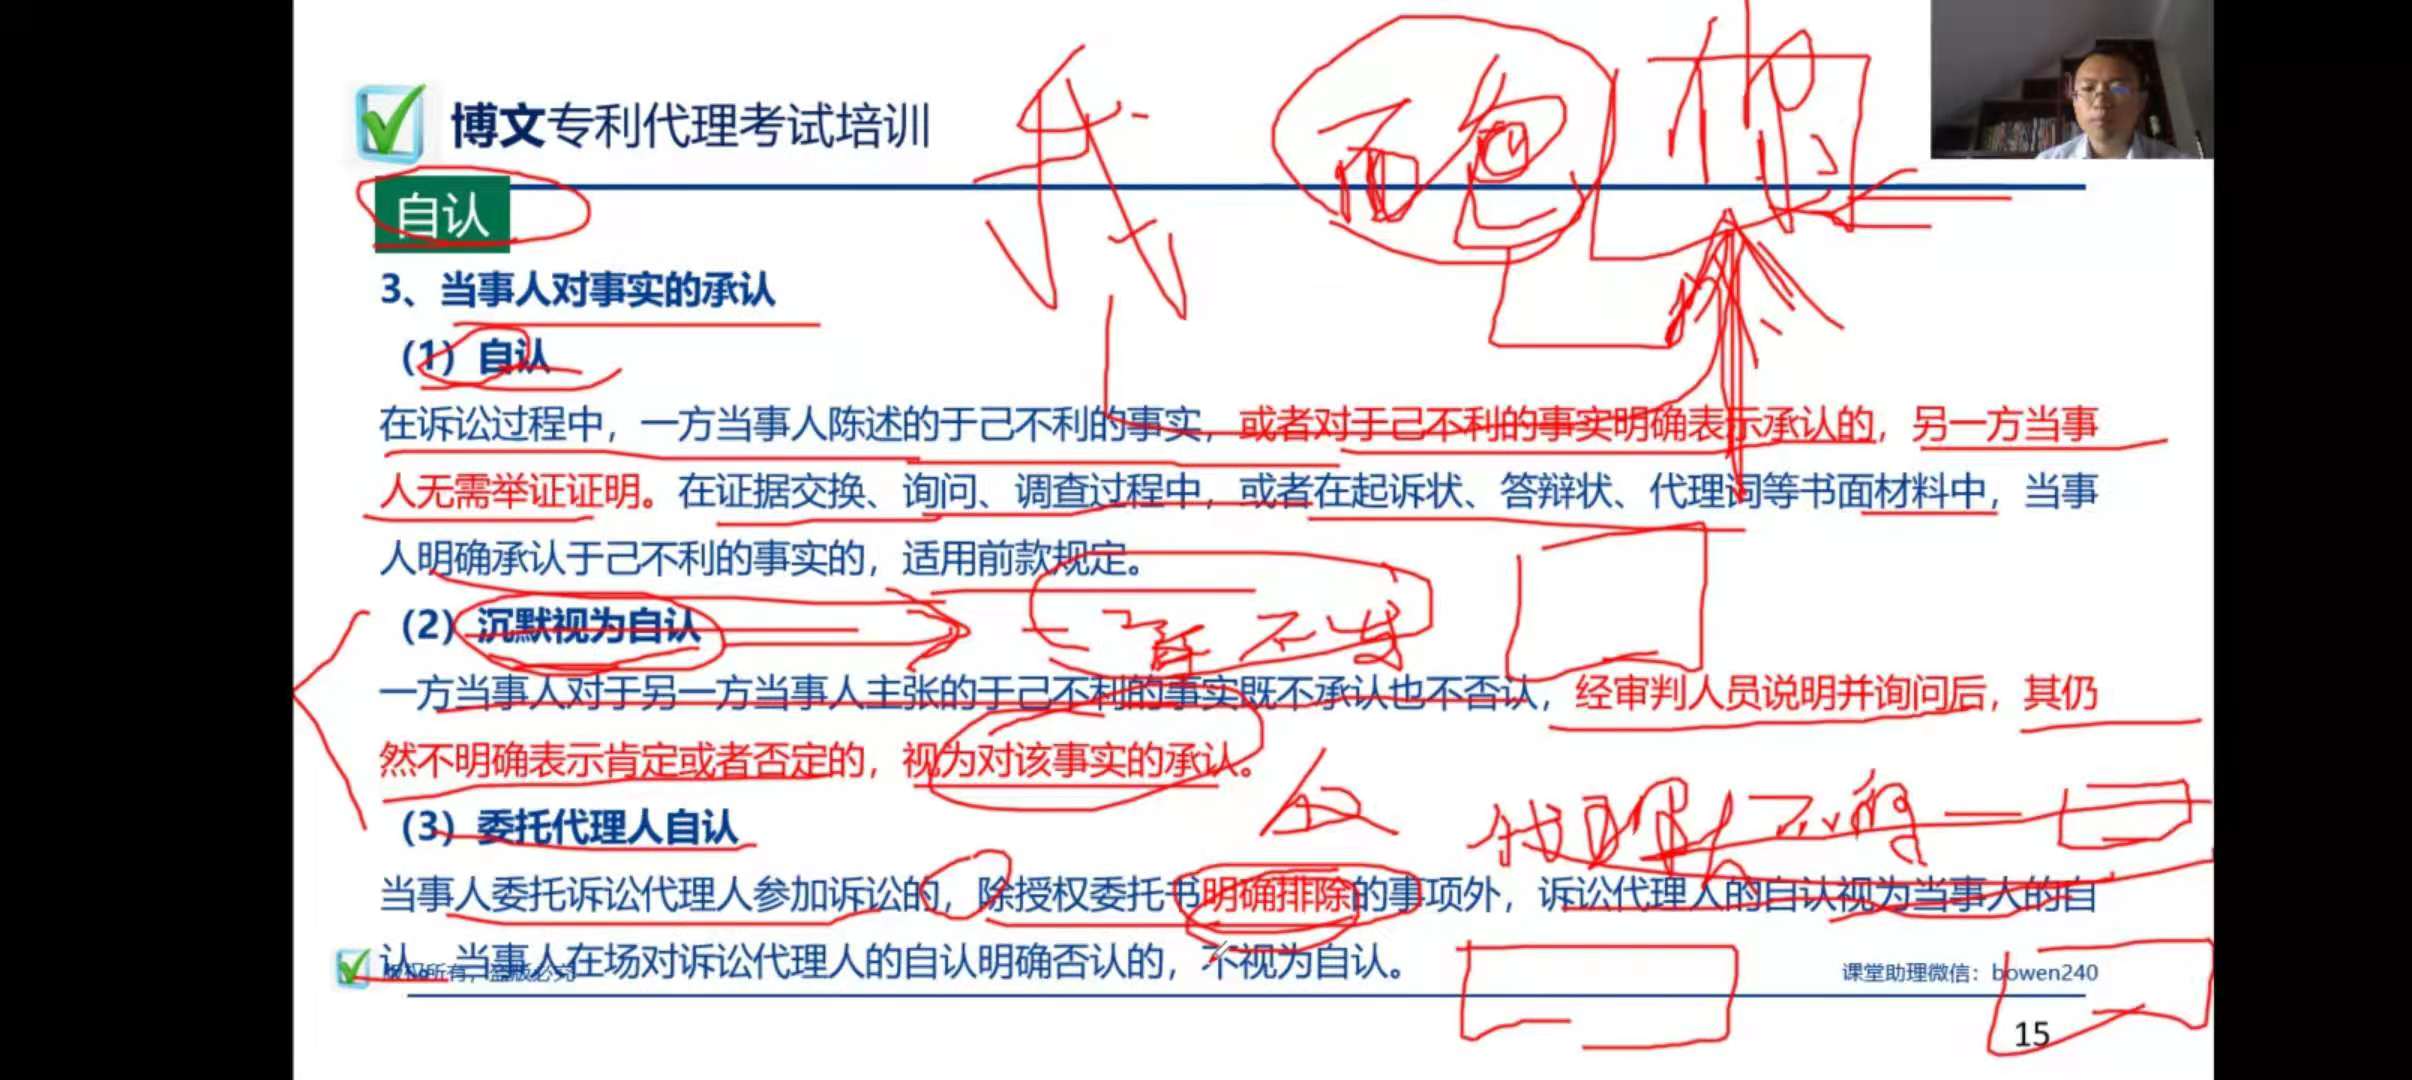 博文专利代理考试培训
自认
3、当事人对事实的承认
（1）自认
在诉讼过程中，一方当事人陈述的于己不利的事实，或者对于己不利的事实明确表示承认的，另一方当事
人无需举证证明。在证据交换、询问、调查过程中，或者在起诉状、答辩状、代理词等书面材料中，当事
人明确承认于己不利的事实的，适用前款规定。
（2）沉默视为自认
一方当事人对于另一方当事人主张的于己不利的事实既不承认也不否认，经审判人员说明并询问后，其仍
然不明确表示肯定或者否定的，视为对该事实的承认。
（3）委托代理人自认
当事人委托诉讼代理人参加诉讼的，除授权委托书明确排除的事项外，诉讼代理人的自认视为当事人的自
认。当事人在场对诉讼代理人的自认明确否认的，不视为自认。
版权所有，盗版必究
课堂助理微信：bowen240
15